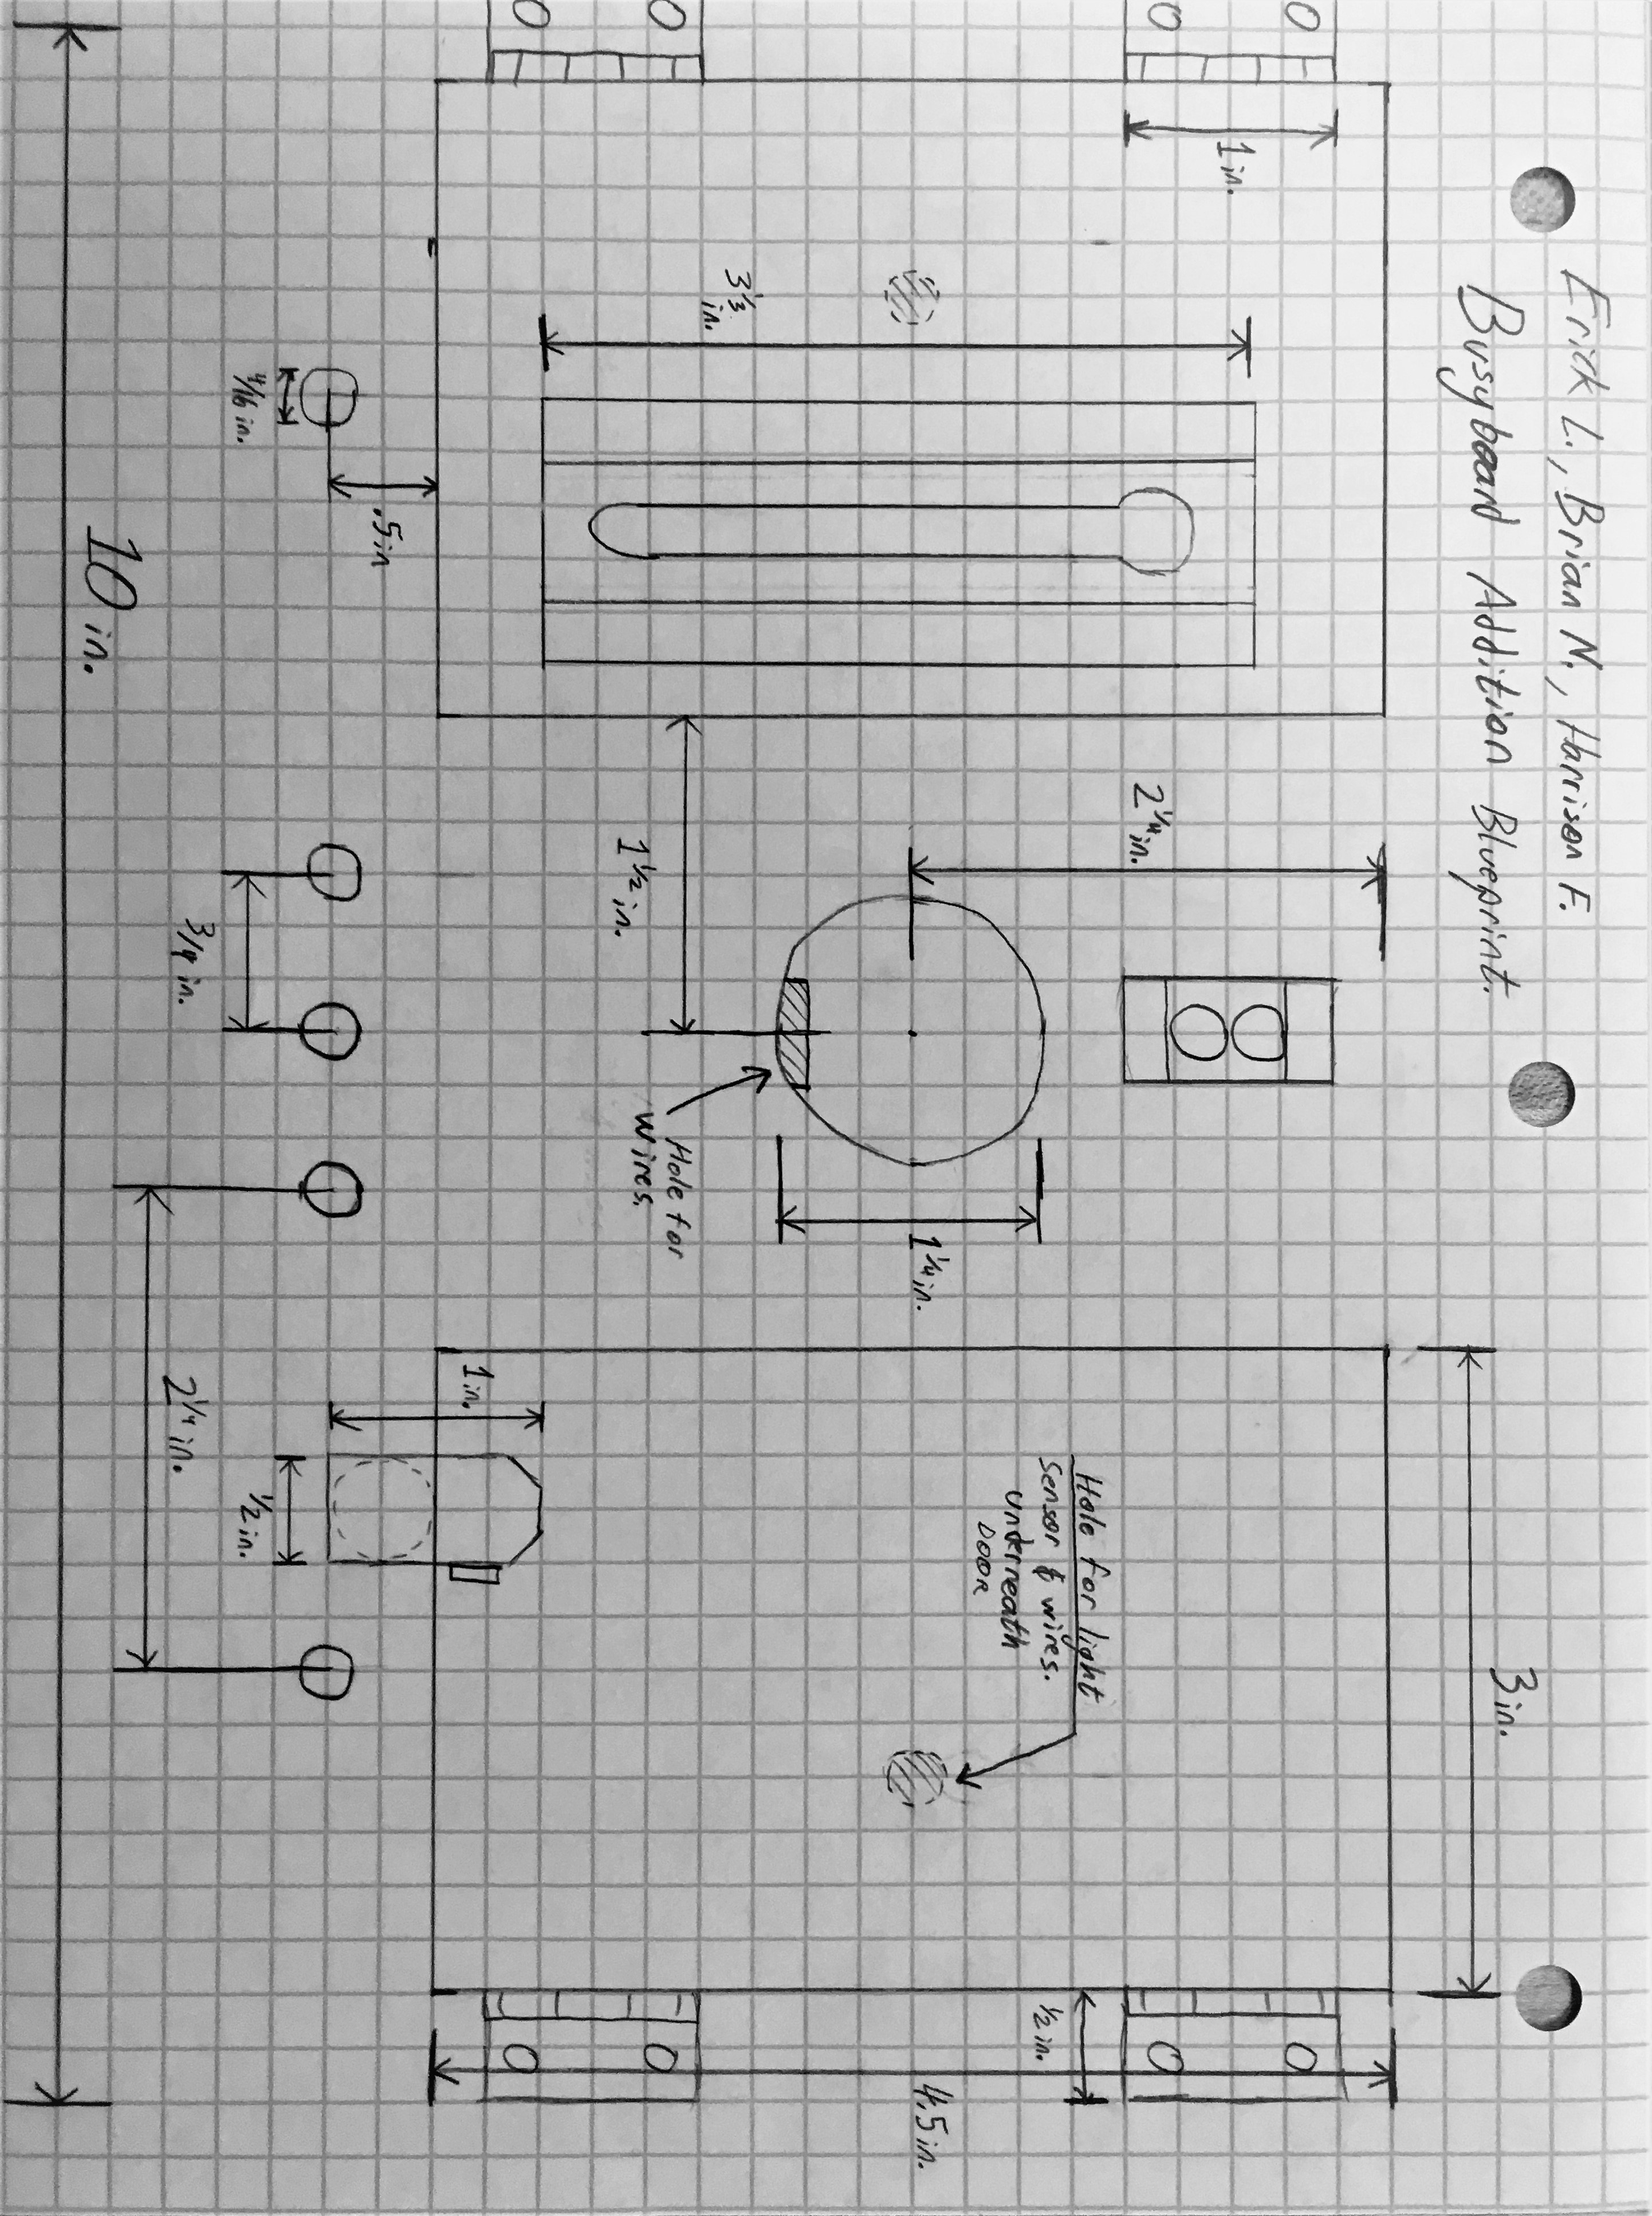 Erick L., Brian N., Harrison F.
Busyboard Addition Blueprint.
3 in.
1 in.
2 1/4 in.
Hole for light
Sensor & wires.
underneath
DOOR
1/2 in.
1 1/4 in.
4.5 in.
3 1/3
in.
Hole for
wires.
1 1/2 in.
1 in.
.5 in
4/16 in.
1/2 in.
3/4 in.
2 1/4 in.
10 in.